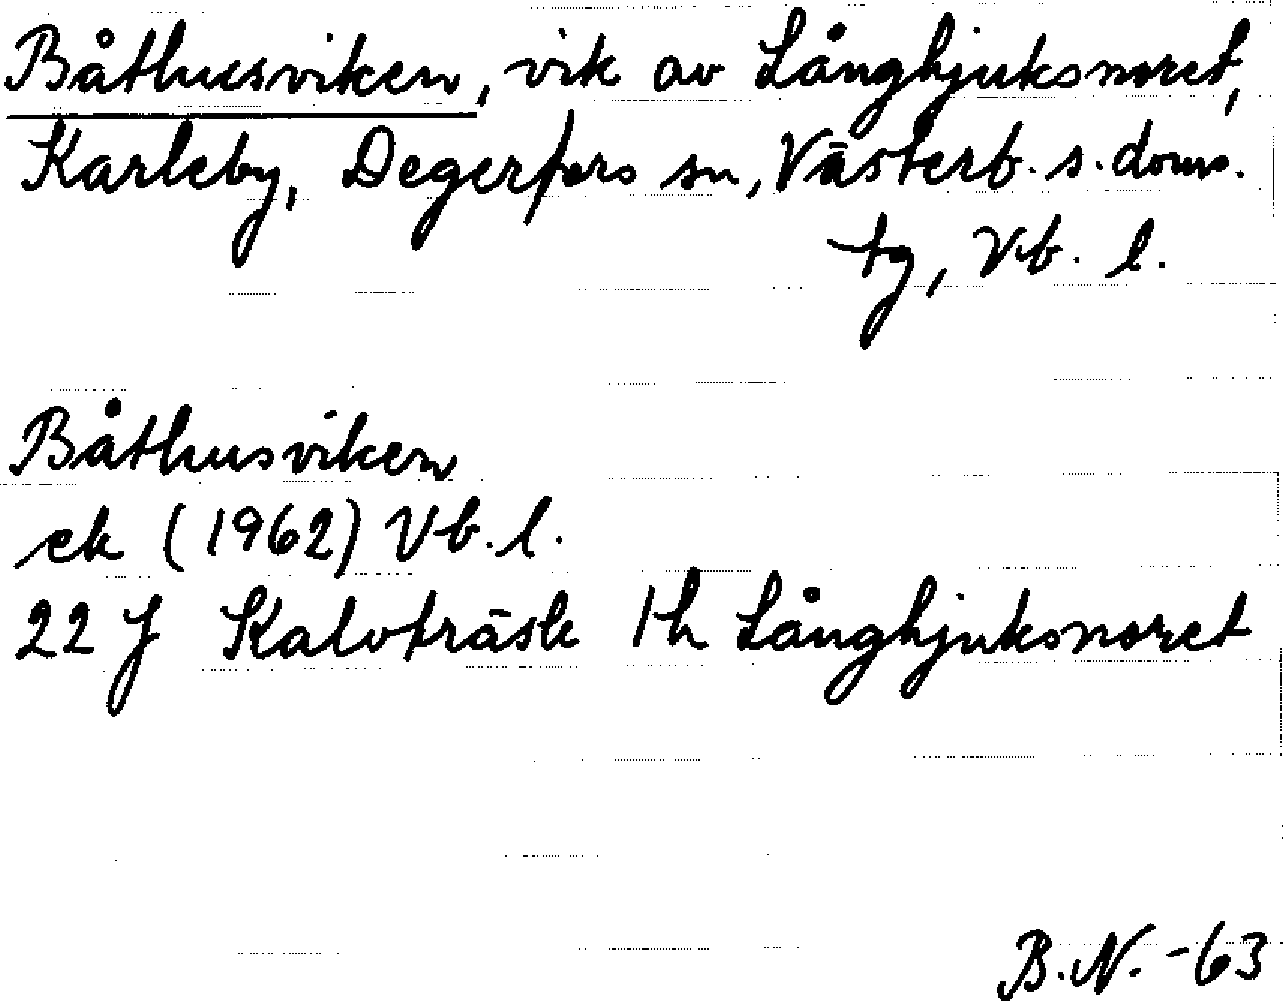 Båthusviken, vik av Långhjuksnoret,
Karleby, Degerfors sn, Västerb. s. doms.
tg, Vb. l.
Båthusviken
ek (1962) Vb. l.
22 J Kalvträsk 1h Långhjuksnoret
B.N. -63